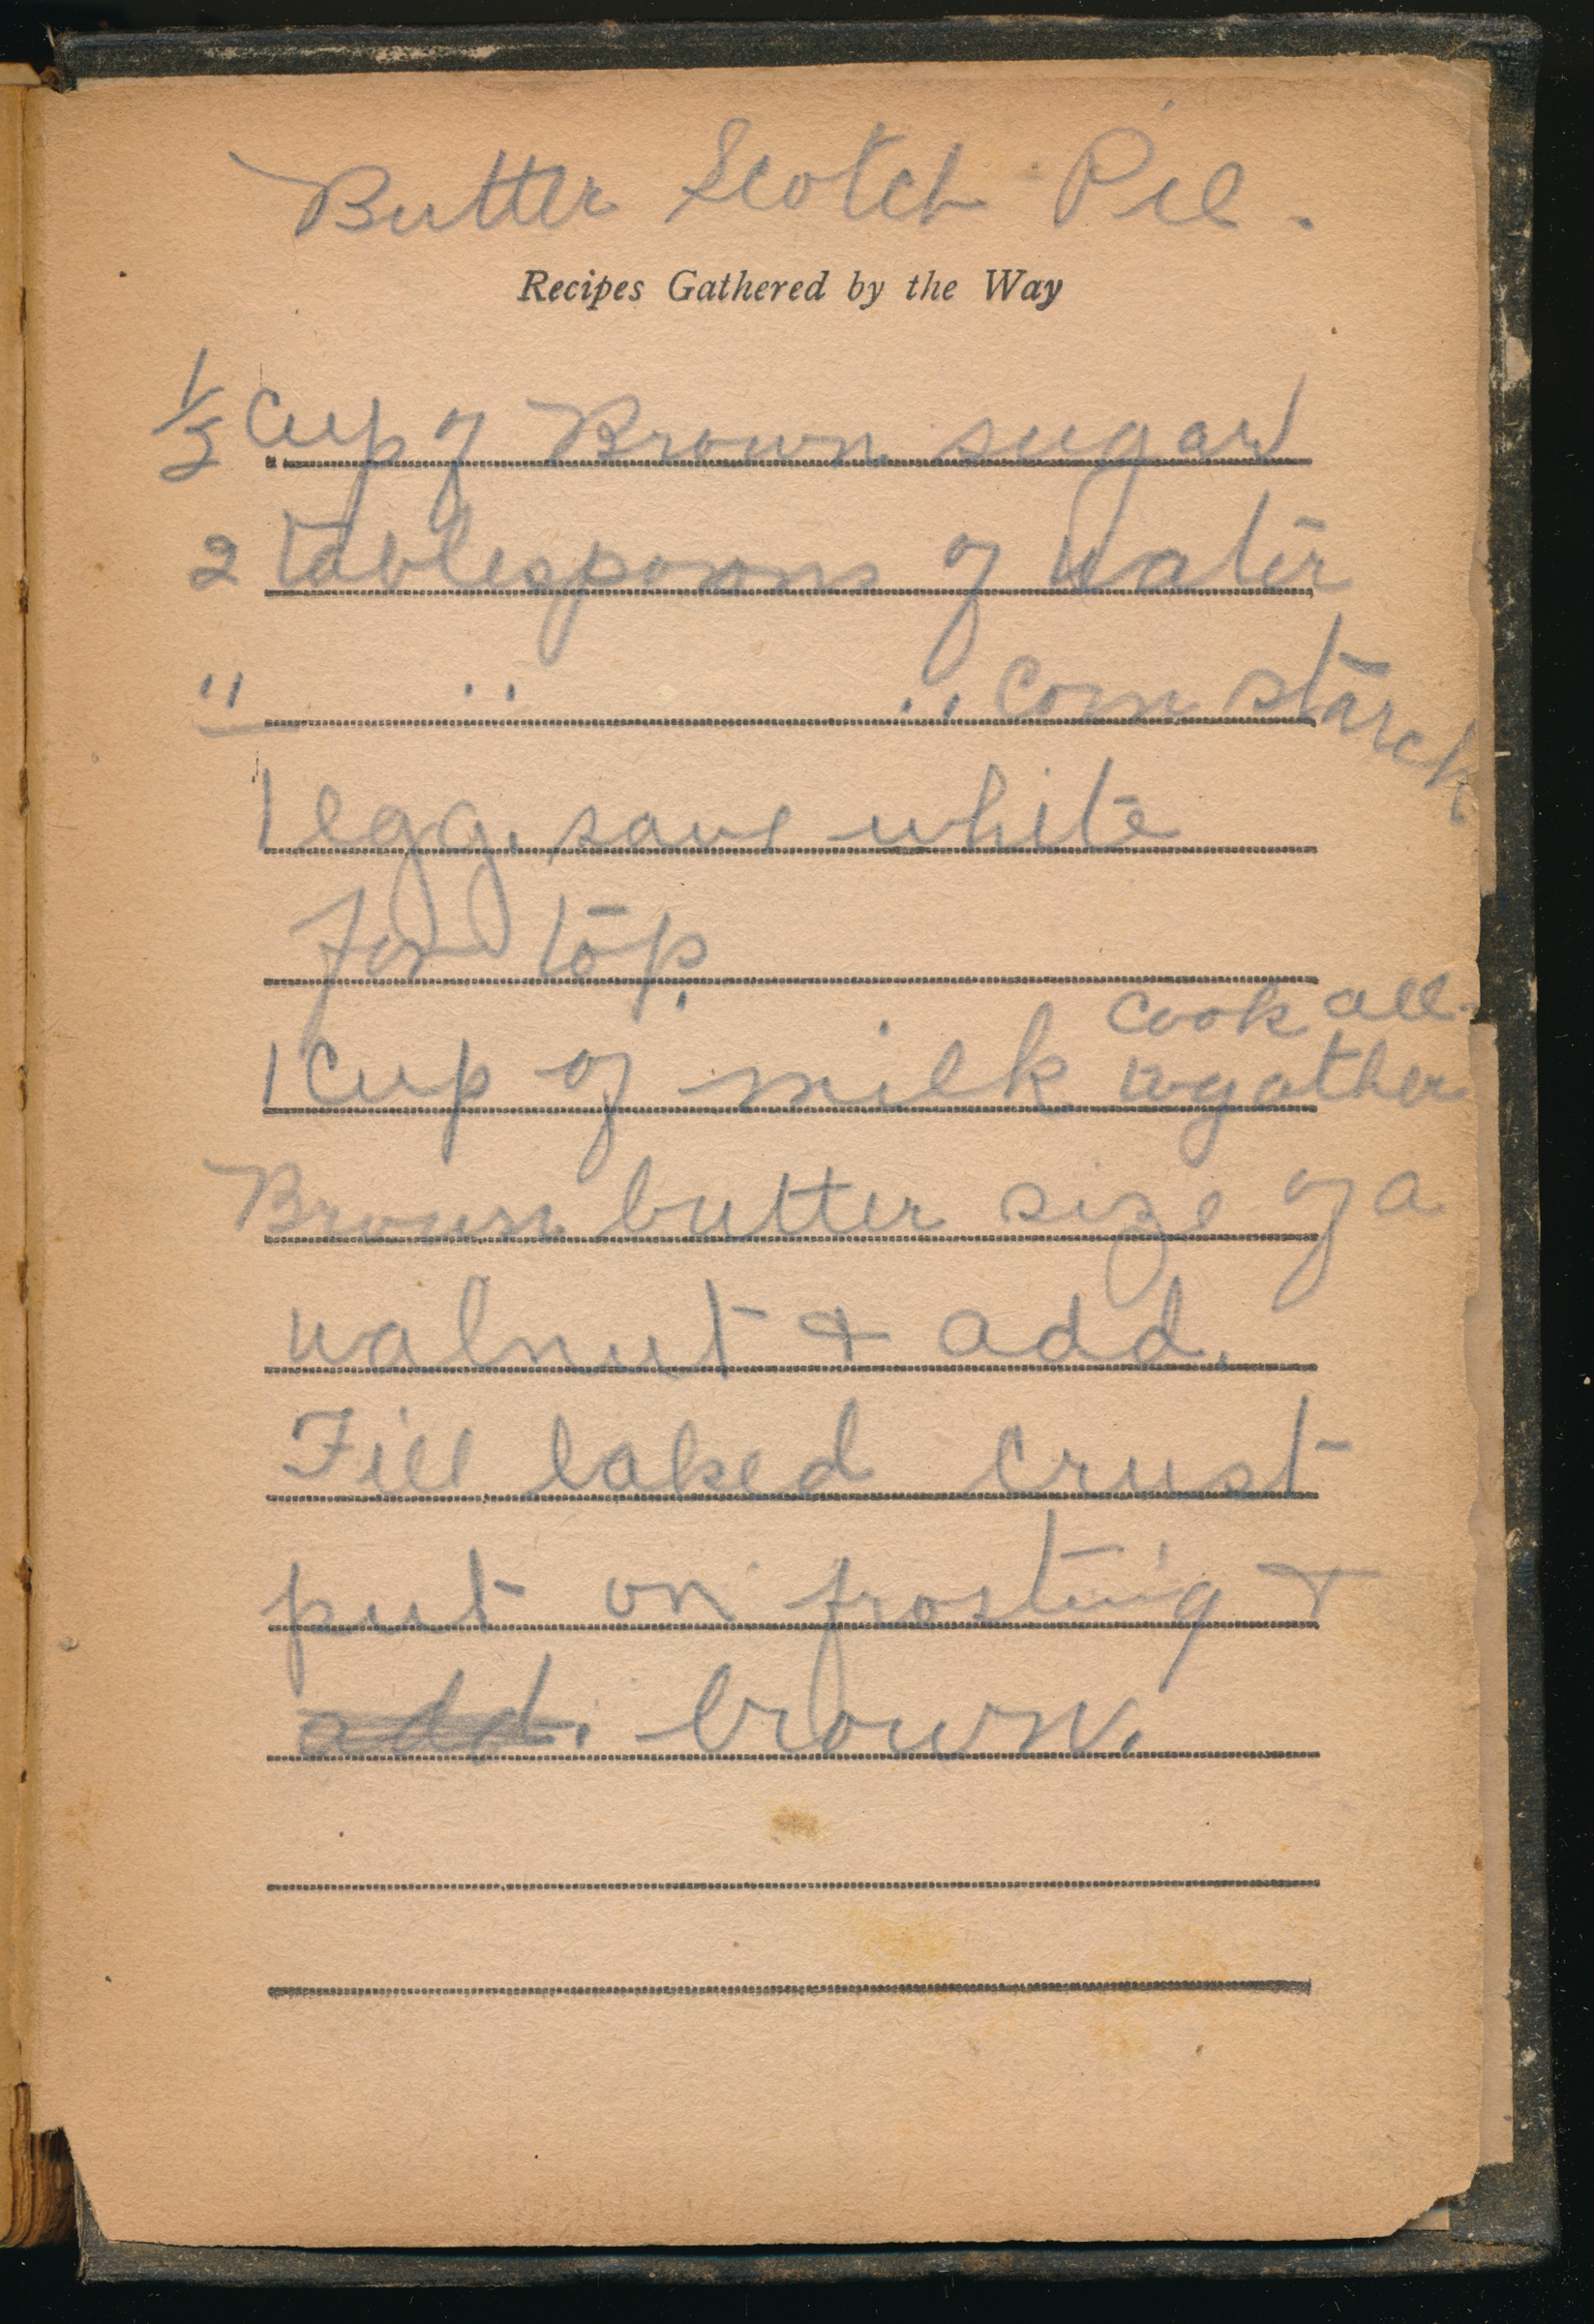 Butter Scotch Pie.
Recipes Gathered by the Way
cup of Brown sugar
2 tablespoons of Water
" " " Corn starch
1 egg, save white
for top.
cook all
1 Cup of milk togather
Brown butter size of a
walnut & add.
Fill baked crust
put on frosting &
add. brown.